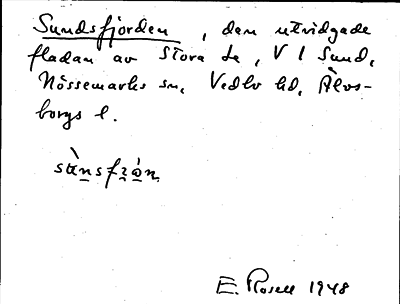 Sundsfjorden, den utvidgade
fladan av Stora Le, V l Sund,
Nössemarks sn, Vedbo hd, Älvs-
borgs l.
E. Rosell 1948